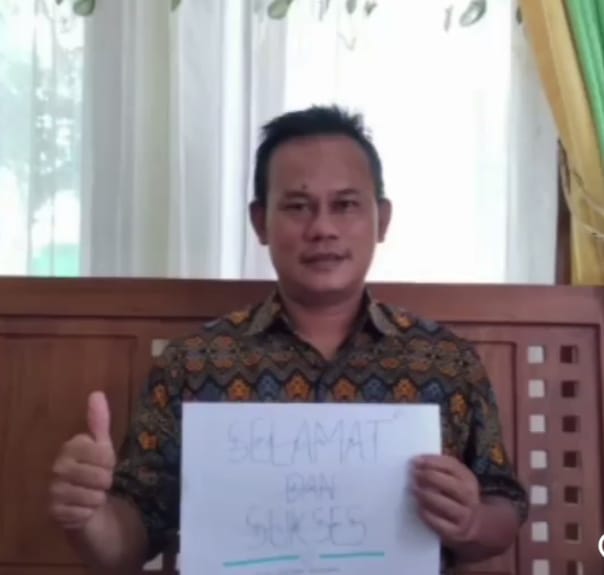 SELAMAT
DAN
SUKSES